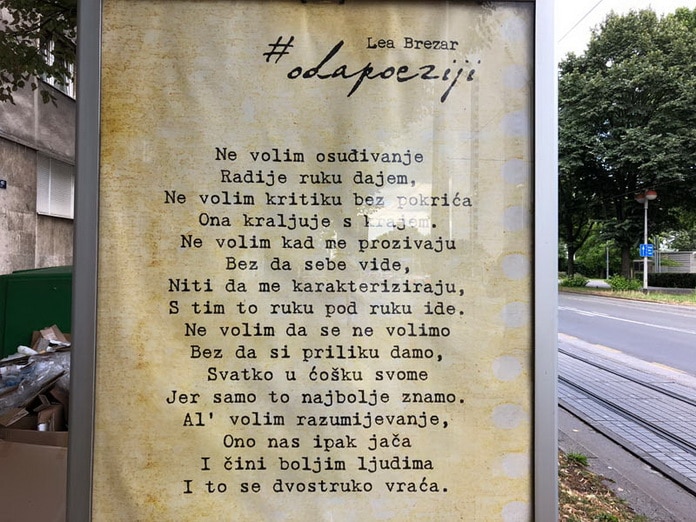 Lea Brezar
#odapoeziji
Ne volim osuđivanje
Radije ruku dajem,
Ne volim kritiku bez pokrića
Ona kraljuje s krajem.
Ne volim kad me prozivaju
Bez da sebe vide,
Niti da me karakteriziraju,
S tim to ruku pod ruku ide.
Ne volim da se ne volimo
Bez da si priliku damo,
Svatko u ćošku svome
Jer samo to najbolje znamo.
Al' volim razumijevanje,
Ono nas ipak jača
I čini boljim ljudima
I to se dvostruko vraća.